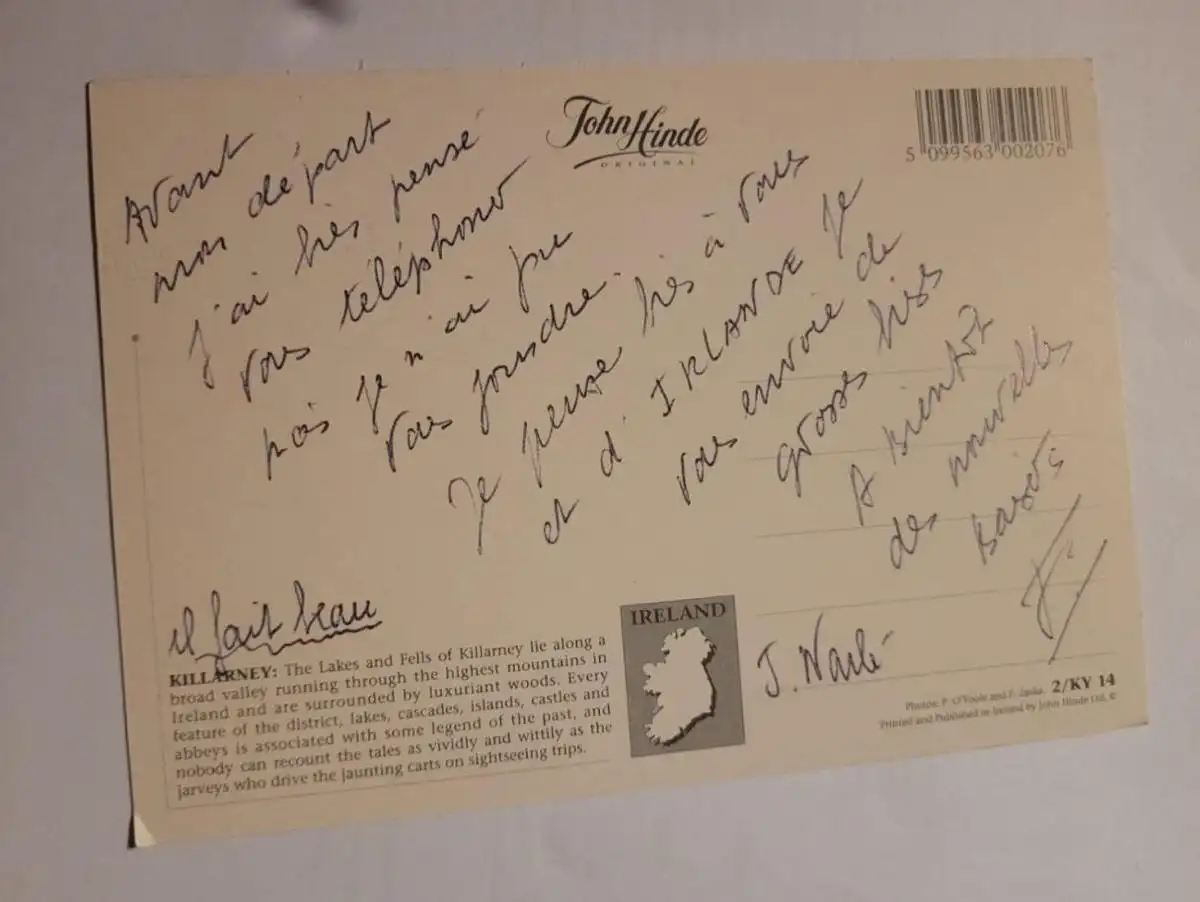 John Hinde
ORIGINAL
5 099563 002076
Avant
mon départ
j'ai très pensé
vous téléphoner
mais je n'ai pu
vous joindre
Je pense très à vous
et d'IRLANDE Je
vous envoie de
grosses bises
A Bientôt
des nouvelles
Baisers
il fait beau
KILLARNEY: The Lakes and Fells of Killarney lie along a
broad valley running through the highest mountains in
Ireland and are surrounded by luxuriant woods. Every
feature of the district, lakes, cascades, islands, castles and
abbeys is associated with some legend of the past, and
nobody can recount the tales as vividly and wittily as the
jarveys who drive the jaunting carts on sightseeing trips.
IRELAND
J.
Photos: P. O'Toole and F. 2/KY 14
Printed and Published in Ireland by John Hinde Ltd. ©